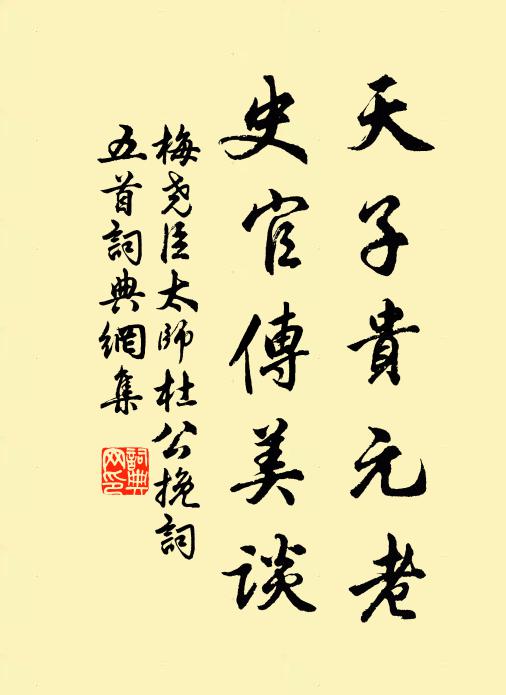 天子貴元老
史官傳美談
梅堯臣太師杜公挽詞
五首詞典網集
詞典
网印